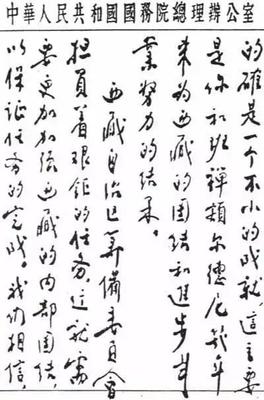 中華人民共和國國務院總理辦公室
的確是一个不小的成就,這主要
是你和班禪額尔德尼幾年
来为西藏的团结和進步事
業努力的结果。
西藏自治区筹備委員會
担負着艰鉅的任务,这就需
要更加加强西藏的内部团结,
以保证任务的完成。我们相信,